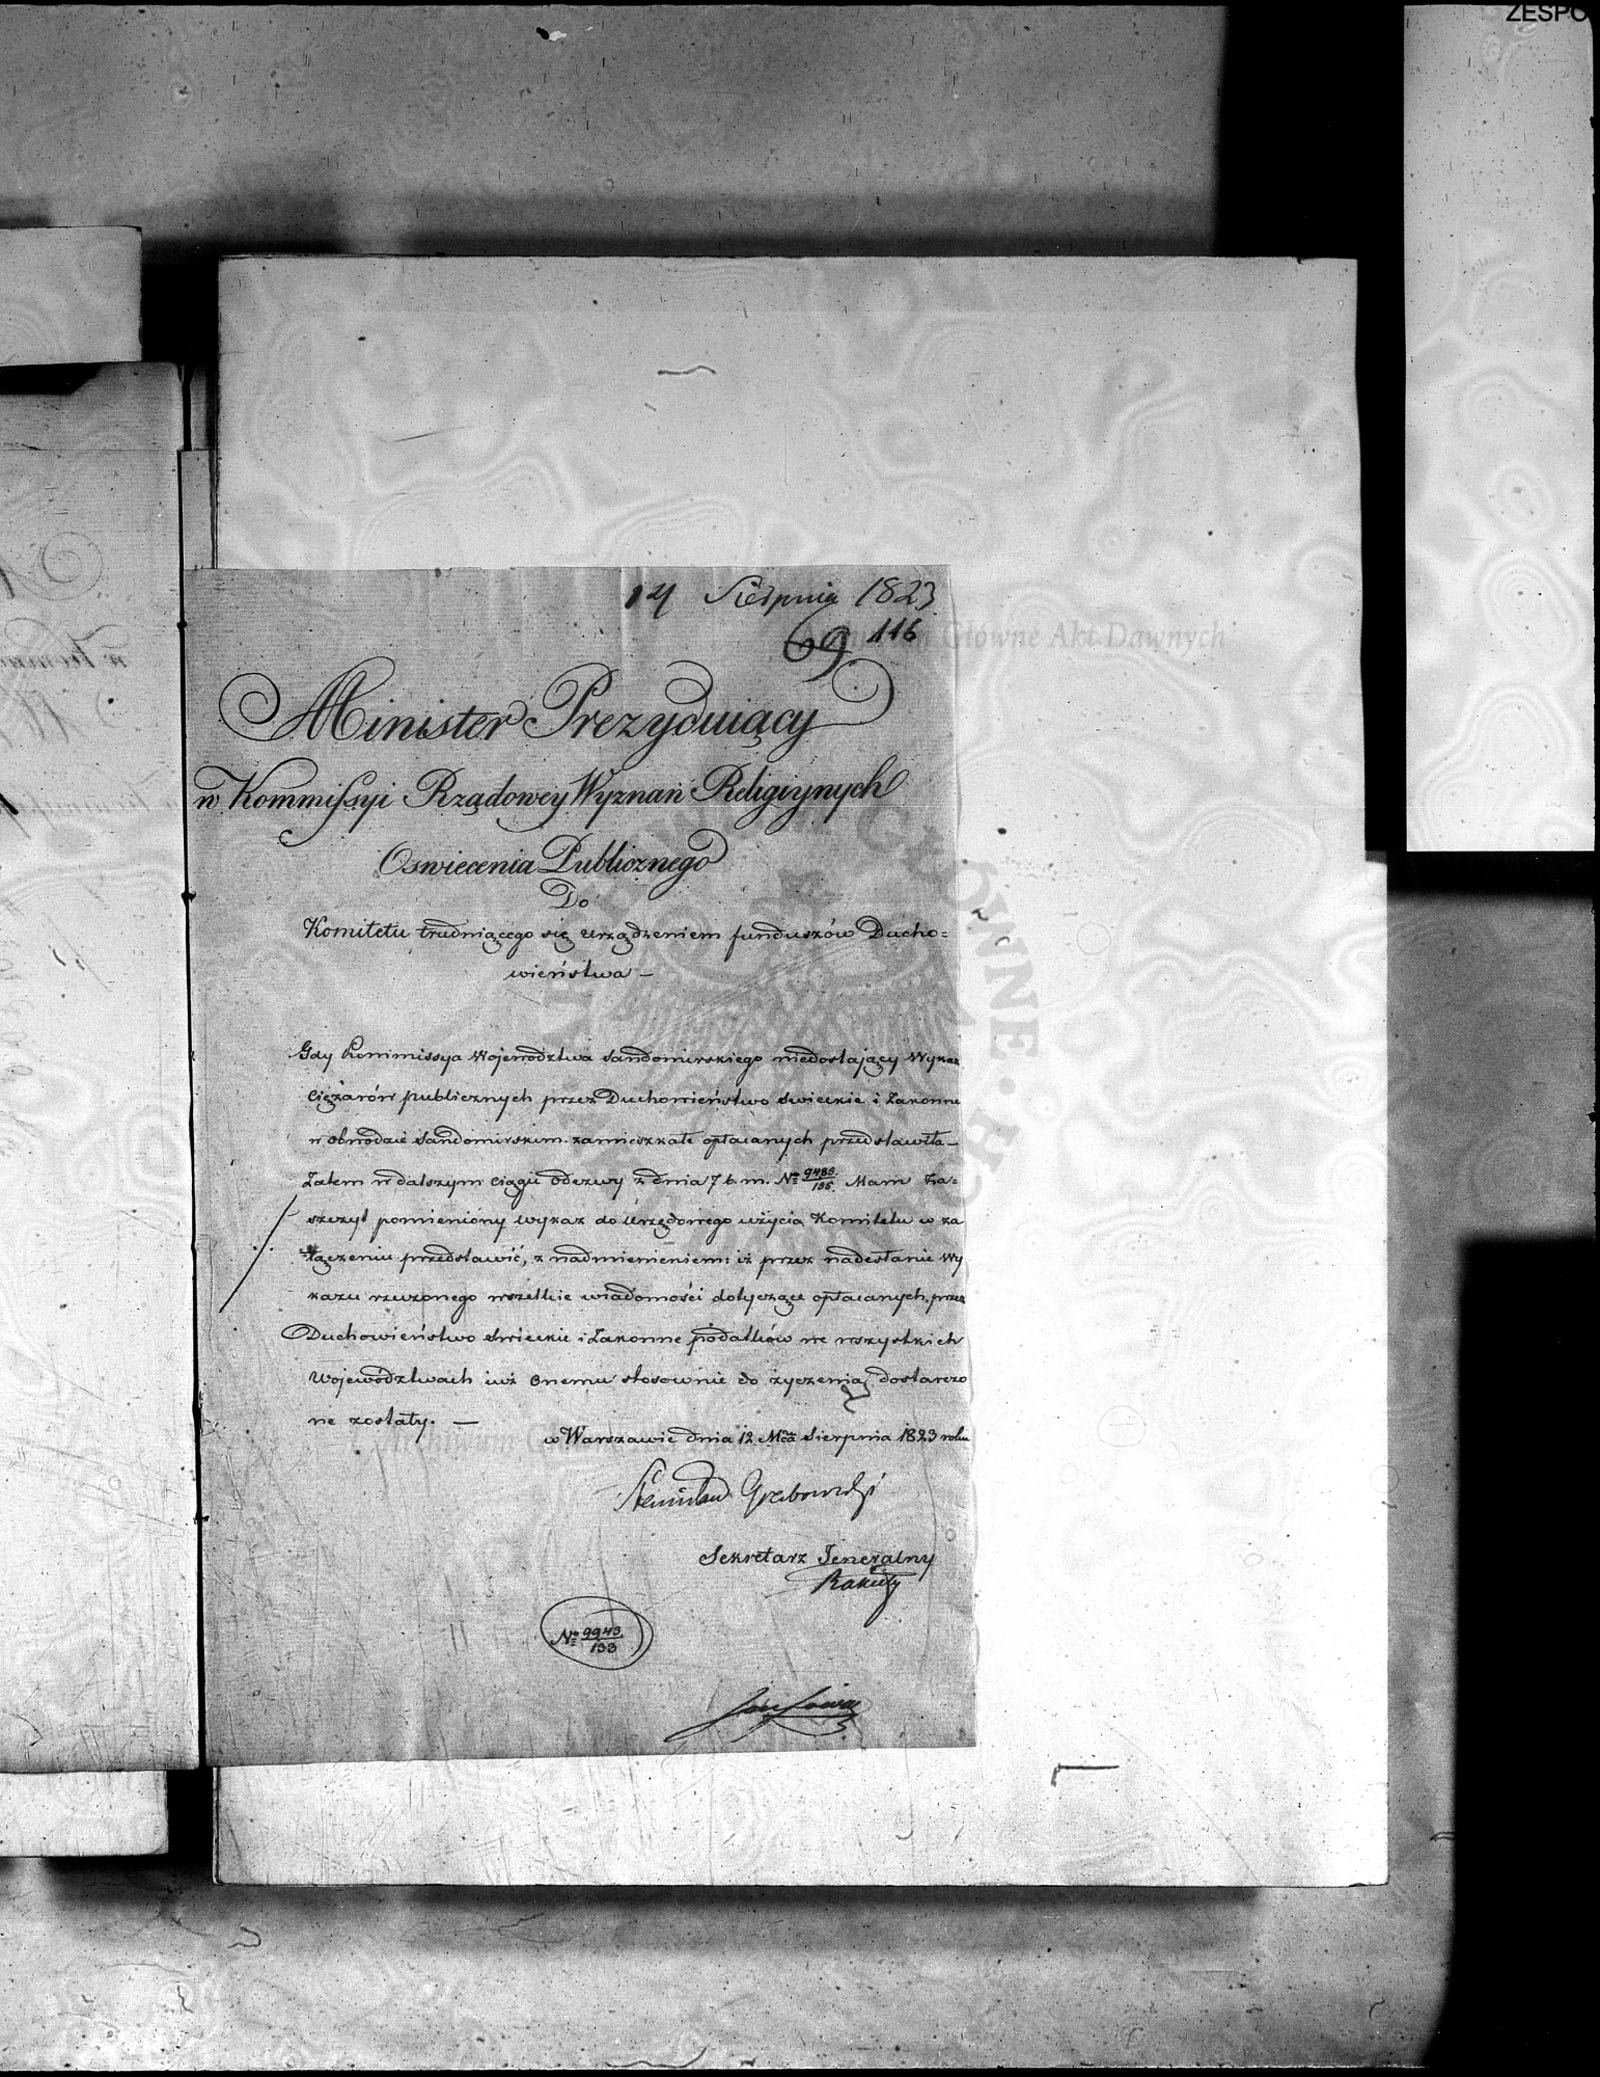 ZESPO
14 Sierpnia 1823
69 116
Minister Prezyduiący
w Kommissyi Rządowey Wyznań Religiynych
Oswiecenia Publicznego
Do
Komitetu trudniącego się urządzeniem funduszów Ducho=
wieństwa —
Gdy Kommissya Wojewodztwa Sandomirskiego niedostający Wykaz
Ciężarów publicznych przez Duchowieństwo Swieckie i Zakonne
w obwodzie Sandomirskim zamieszkałe opłacanych przedstawiła —
Zatem w dalszym ciągu odezwy z dnia 7 b. m. No 9485/135. Mam Za=
szczyt pomieniony wykaz do Urzędowego użycia Komitetu w za
łączeniu przedstawić, z nadmienieniem: iż przez nadesłanie Wy
kazu rzeczonego wszelkie wiadomości dotyczące opłacanych przez
Duchowieństwo Swieckie i Zakonne podatków we wszystkich
Województwach iuż Onemu stosownie do życzenia dostarczo
ne zostały. —
w Warszawie dnia 12 Mca Sierpnia 1823 roku
Stanisław Grabowski
Sekretarz Jeneralny
No 9943/133
Archiwum Główne Akt Dawnych